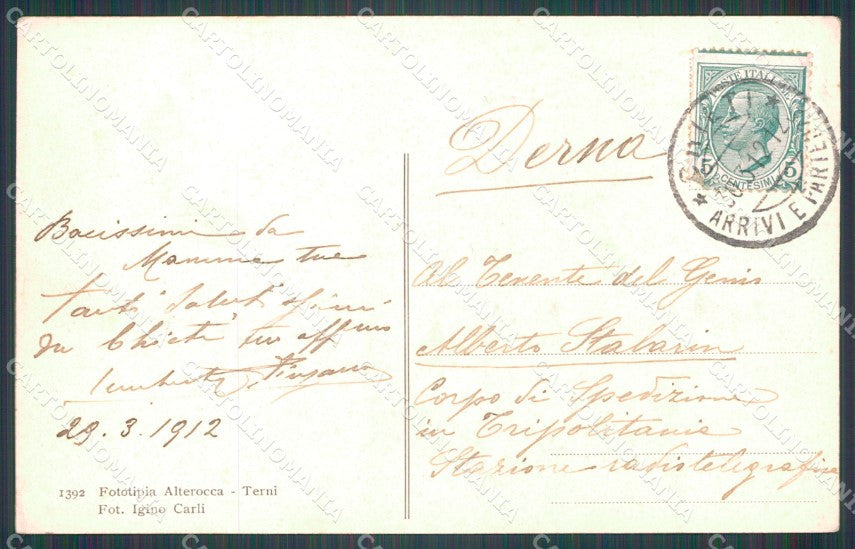 Derna
POSTE ITALIANE
5 5
CENTESIMI
CHIETI
ARRIVI E PARTENZE
Bacissimi da
Mamma tua
Tanti Saluti
da Chieti tuo aff
Umberto
29.3.1912
Al Tenente del Genio
Alberto Stabarin
Corpo di Spedizione
in Tripolitania
Stazione radiotelegrafica
1392 Fototipia Alterocca - Terni
Fot. Igino Carli
CARTOLINOMANIA